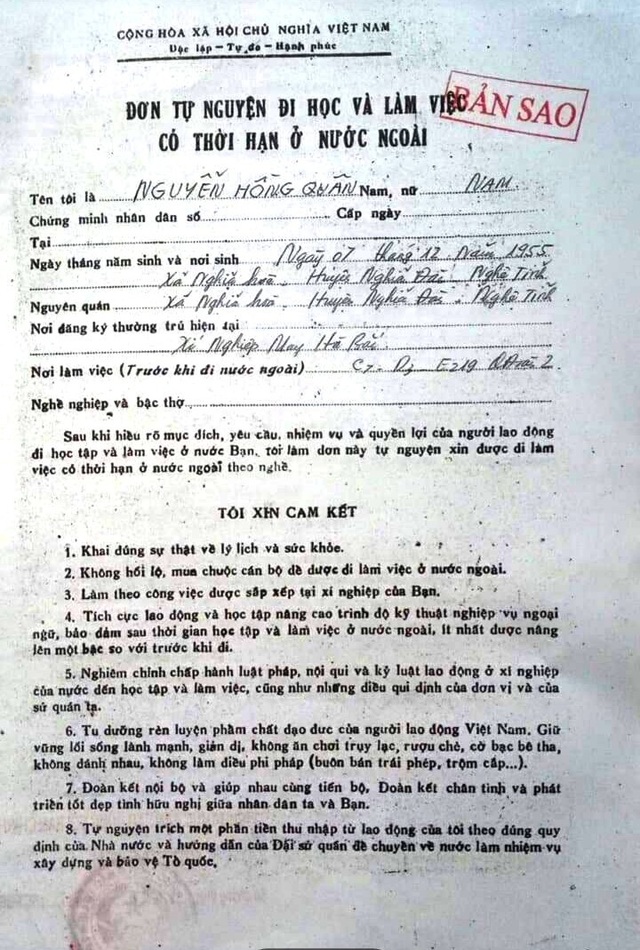 CỘNG HÒA XÃ HỘI CHỦ NGHĨA VIỆT NAM
Độc lập - Tự do - Hạnh phúc
BẢN SAO
ĐƠN TỰ NGUYỆN ĐI HỌC VÀ LÀM VIỆC
CÓ THỜI HẠN Ở NƯỚC NGOÀI
Tên tôi là NGUYỄN HỒNG QUÂN Nam, nữ NAM.
Chứng minh nhân dân số Cấp ngày
Tại
Ngày tháng năm sinh và nơi sinh Ngày 07 tháng 12 Năm 1955
Xã Nghĩa hoà. Huyện Nghĩa Đàn. Nghệ Tĩnh
Nguyên quán Xã Nghĩa hoà. Huyện Nghĩa Đàn. Nghệ Tĩnh
Nơi đăng ký thường trú hiện tại
Xí Nghiệp May Hà
Nơi làm việc (Trước khi đi nước ngoài) E219
Nghề nghiệp và bậc thợ
Sau khi hiểu rõ mục đích, yêu cầu, nhiệm vụ và quyền lợi của người lao động
đi học tập và làm việc ở nước Bạn, tôi làm đơn này tự nguyện xin được đi làm
việc có thời hạn ở nước ngoài theo nghề.
TÔI XIN CAM KẾT
1. Khai đúng sự thật về lý lịch và sức khỏe.
2. Không hối lộ, mua chuộc cán bộ để được đi làm việc ở nước ngoài.
3. Làm theo công việc được sắp xếp tại xí nghiệp của Bạn.
4. Tích cực lao động và học tập nâng cao trình độ kỹ thuật nghiệp vụ ngoại
ngữ, bảo đảm sau thời gian học tập và làm việc ở nước ngoài, ít nhất được nâng
lên một bậc so với trước khi đi.
5. Nghiêm chỉnh chấp hành luật pháp, nội qui và kỷ luật lao động ở xí nghiệp
của nước đến học tập và làm việc, cũng như những điều qui định của đơn vị và của
sứ quán ta.
6. Tu dưỡng rèn luyện phẩm chất đạo đức của người lao động Việt Nam. Giữ
vững lối sống lành mạnh, giản dị, không ăn chơi trụy lạc, rượu chè, cờ bạc bê tha,
không đánh nhau, không làm điều phi pháp (buôn bán trái phép, trộm cắp...).
7. Đoàn kết nội bộ và giúp nhau cùng tiến bộ, Đoàn kết chân tình và phát
triển tốt đẹp tình hữu nghị giữa nhân dân ta và Bạn.
8. Tự nguyện trích một phần tiền thu nhập từ lao động của tôi theo đúng quy
định của Nhà nước và hướng dẫn của Đại sứ quán để chuyển về nước làm nhiệm vụ
xây dựng và bảo vệ Tổ quốc.